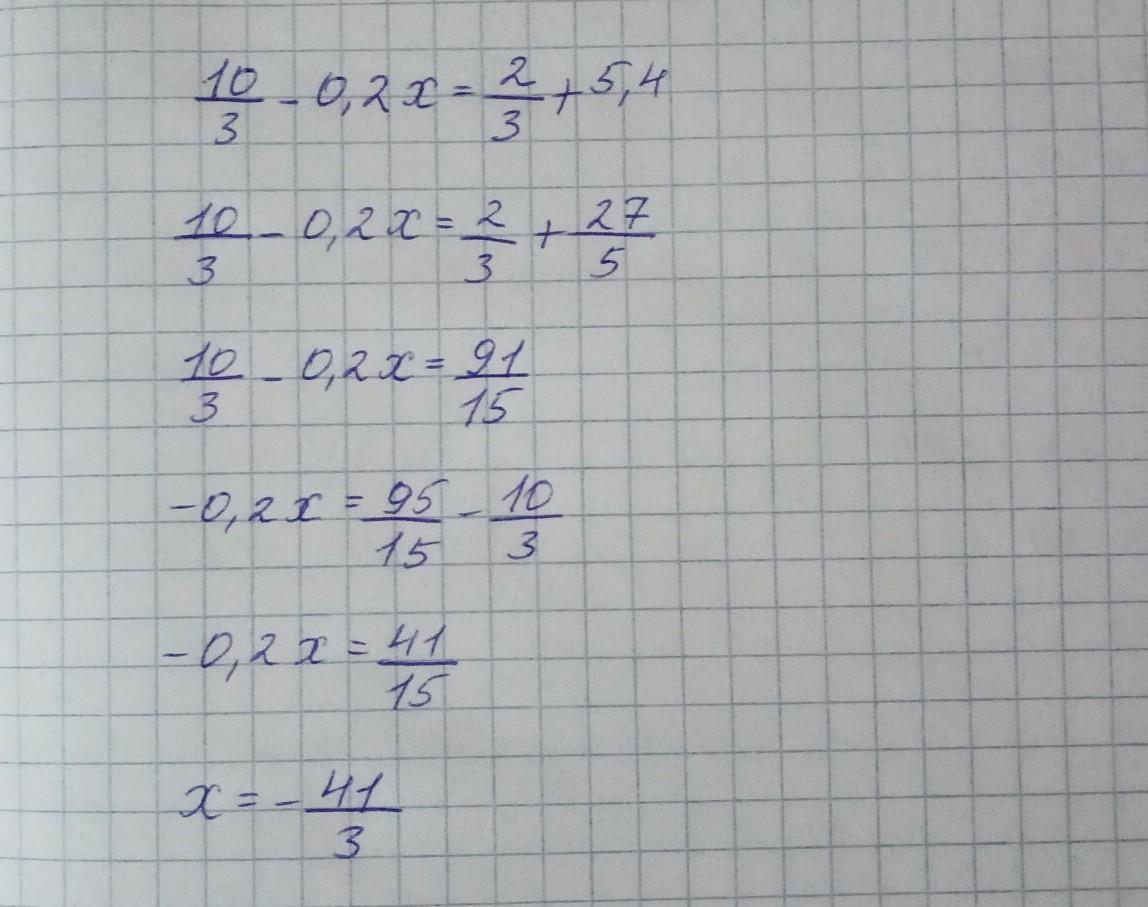 10/3 - 0,2x = 2/3 + 5,4
10/3 - 0,2x = 2/3 + 27/5
10/3 - 0,2x = 91/15
-0,2x = 95/15 - 10/3
-0,2x = 41/15
x = - 41/3